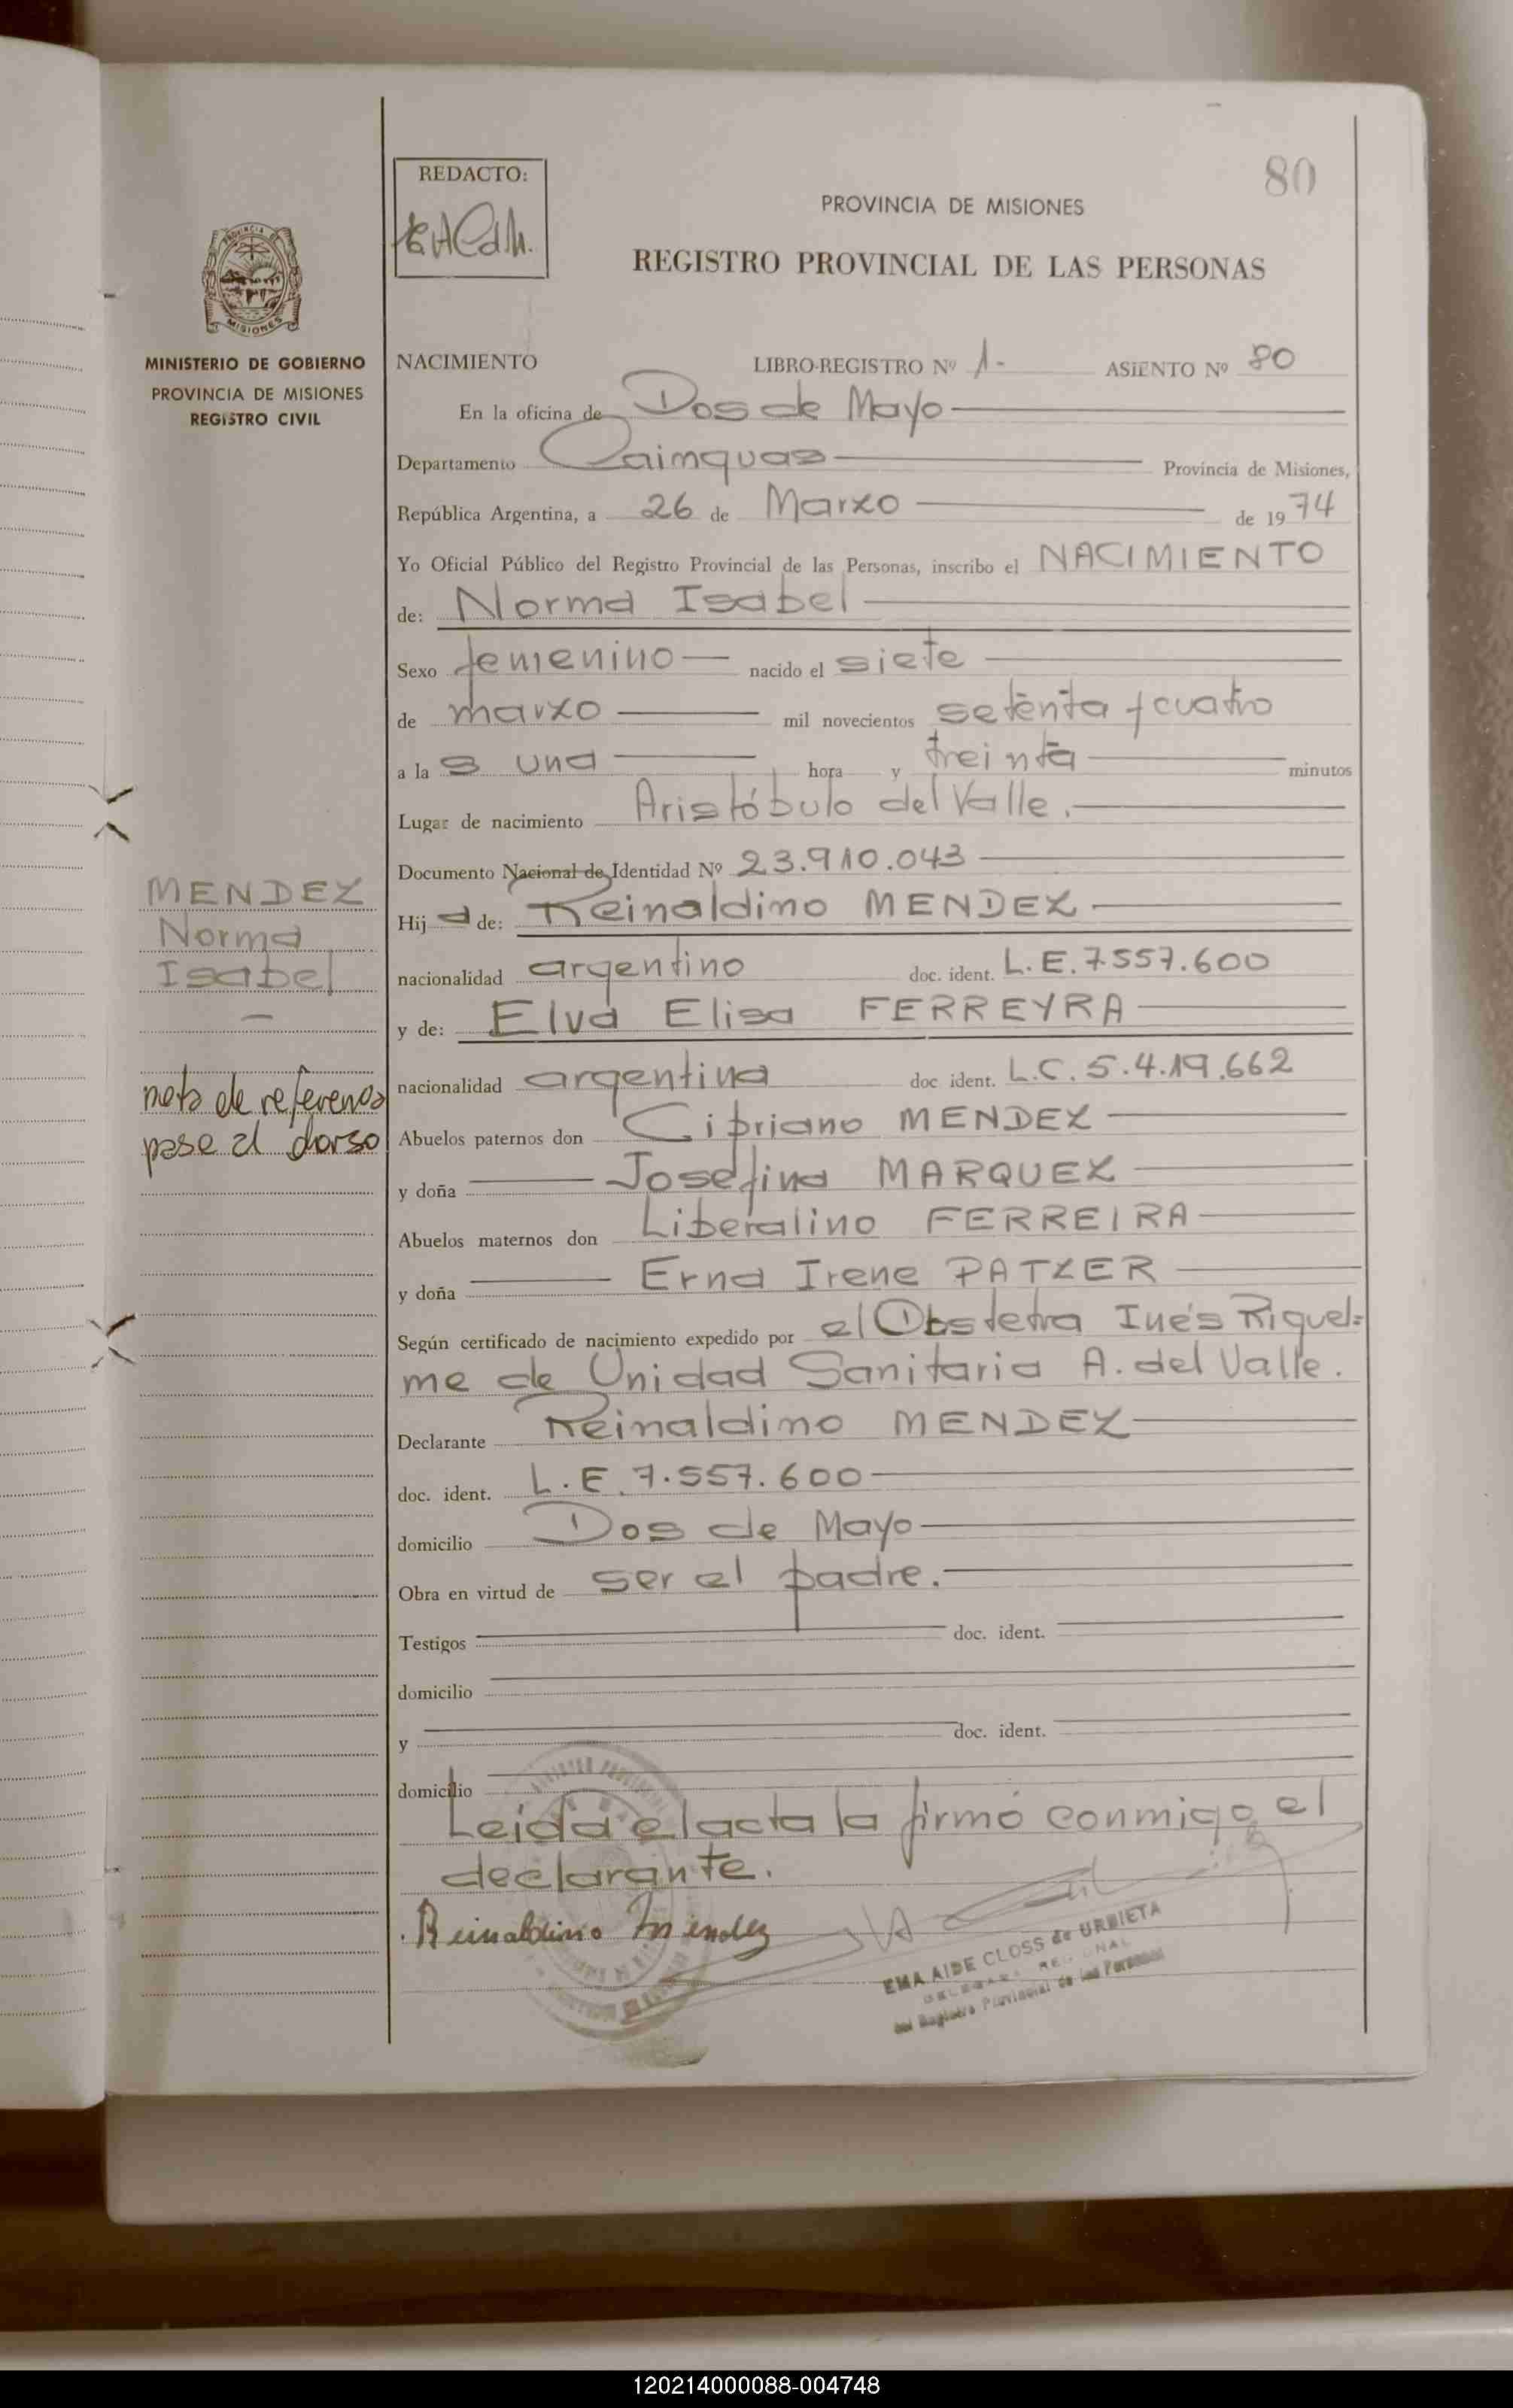 80
REDACTO:
PROVINCIA DE MISIONES
REGISTRO PROVINCIAL DE LAS PERSONAS
PROVINCIA DE
MISIONES
MINISTERIO DE GOBIERNO
PROVINCIA DE MISIONES
REGISTRO CIVIL
NACIMIENTO LIBRO-REGISTRO Nº 1- ASIENTO Nº 80
En la oficina de Dos de Mayo
Departamento Cainguas Provincia de Misiones,
República Argentina, a 26 de Marzo de 1974
Yo Oficial Público del Registro Provincial de las Personas, inscribo el NACIMIENTO
de: Norma Isabel
Sexo femenino nacido el siete
de marzo mil novecientos setenta y cuatro
a la s una hora y treinta minutos
Lugar de nacimiento Aristóbulo del Valle.
Documento Nacional de Identidad Nº 23.910.043
Hij a de: Reinaldino MENDEZ
nacionalidad argentino doc. ident. L.E. 7.557.600
y de: Elva Elisa FERREYRA
nacionalidad argentina doc ident. L.C. 5.419.662
Abuelos paternos don Cipriano MENDEZ
y doña Josefina MARQUEZ
Abuelos maternos don Liberalino FERREIRA
y doña Erna Irene PATZER
Según certificado de nacimiento expedido por el Obstetra Inés Riquel=
me de Unidad Sanitaria A. del Valle.
Declarante Reinaldino MENDEZ
doc. ident. L.E. 7.557.600
domicilio Dos de Mayo
Obra en virtud de ser el padre.
Testigos doc. ident.
domicilio
y doc. ident.
domicilio
Leida el acta la firmó conmigo el
declarante.
Reinaldino Mendez
EMA AIDE CLOSS de URBIETA
DELEGADA REGIONAL
del Registro Provincial de las Personas
MENDEZ
Norma
Isabel
nota de referencia
pase al dorso
120214000088-004748